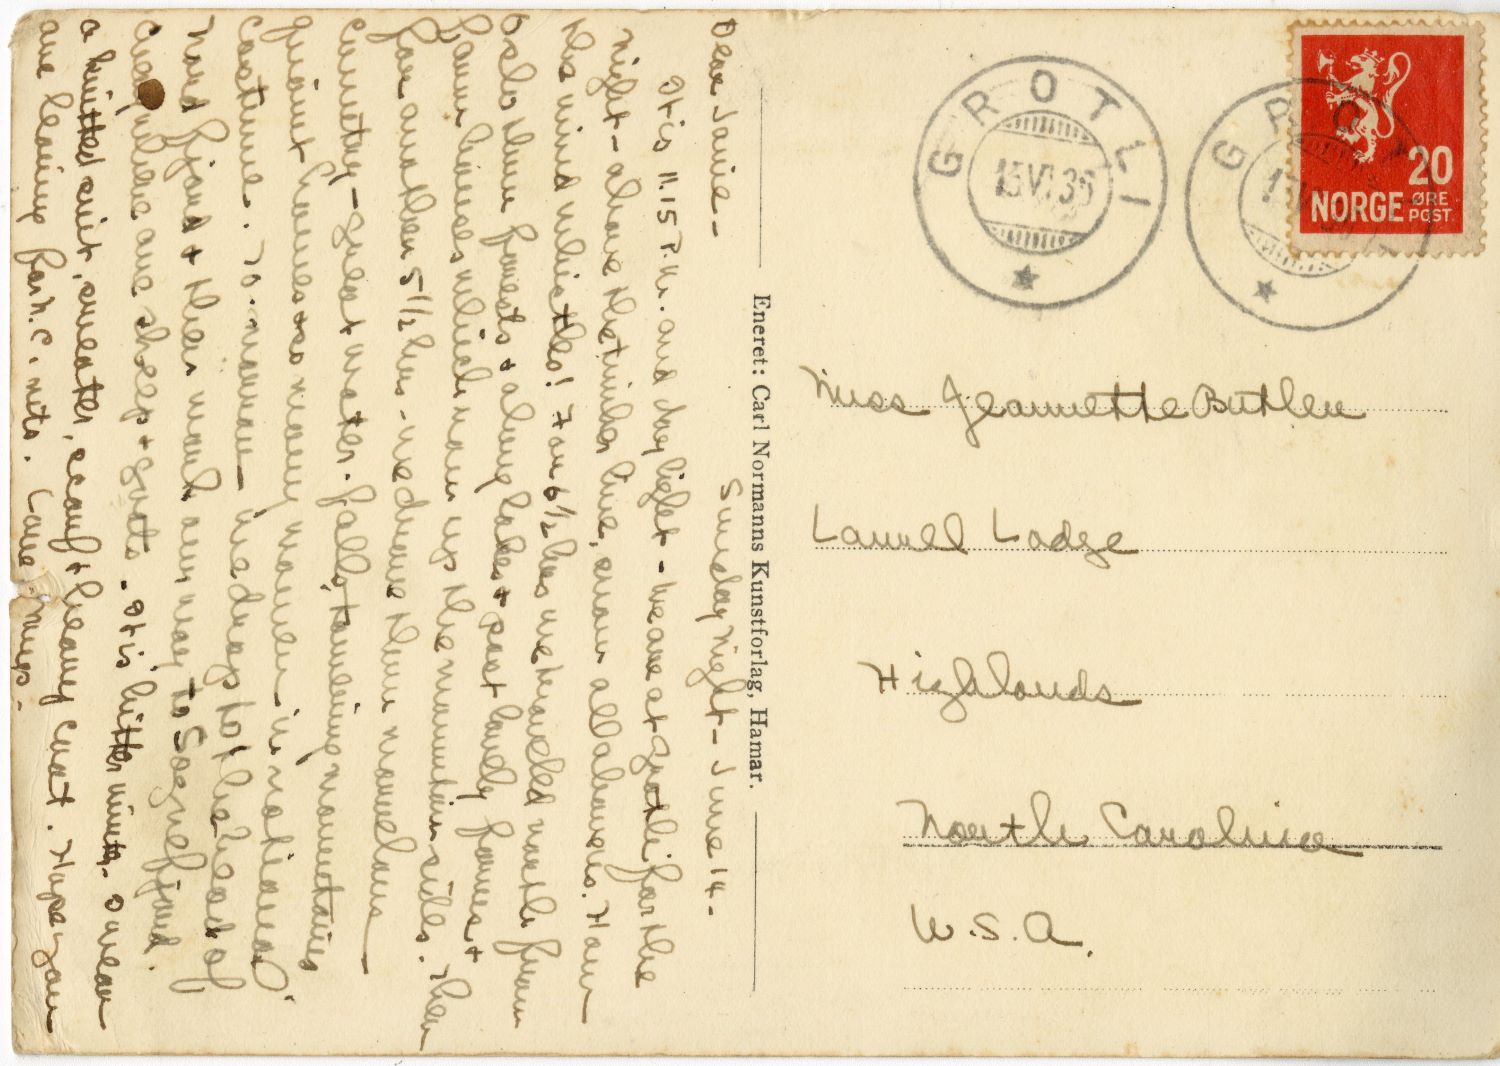 Sunday Night - June 14 -
Dear Janie -
It is 11.15 P.M. and day light - We are at Grotli for the
night - above the timber line, snow all above us. How
the wind whistles! For 6 1/2 hrs we traveled north from
Oslo thru forests & along lakes & past lovely farms &
farm houses which ran up the mountain sides. Then
for another 5 1/2 hrs - we drove thru marvelous
country - great water falls, towering mountains
quaint houses & so many women in national
costume. To-morrow we drop to the head of
Nord fjord & then work our way to Sognefjord.
Everywhere are sheep & goats. It is bitter winter. I wear
a knitted suit, sweater, scarf & heavy coat. Hope you
are leaving for N.C. mts. Love
Eneret: Carl Normanns Kunstforlag, Hamar.
GROTLI
15 VI 36
GROTLI
20
NORGE ØRE
POST
Miss Jeannette Butler
Laurel Lodge
Highlands
North Carolina
U.S.A.